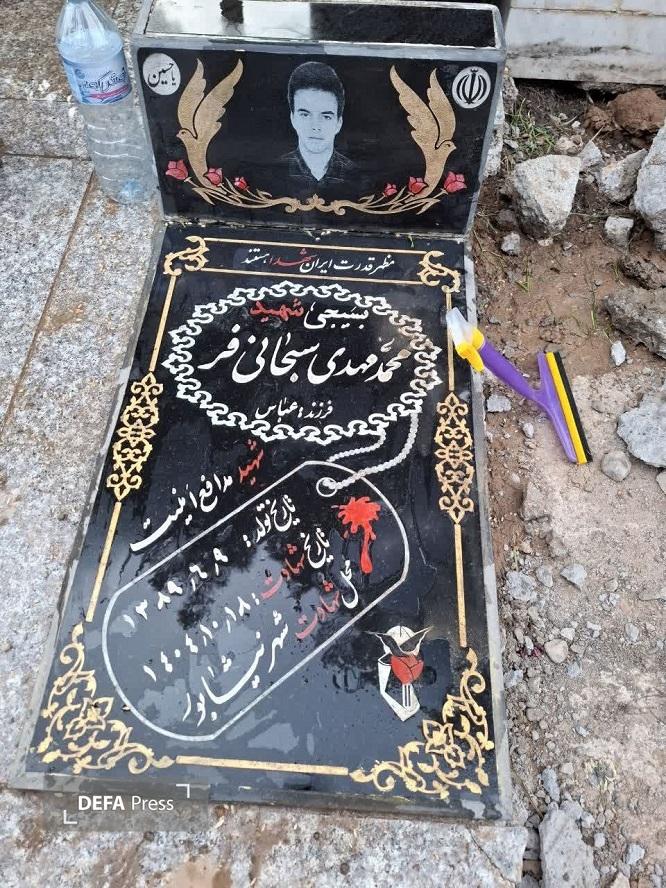 یا حسین
مظهر قدرت ایران شهدا هستند
بسیجی شهید
محمد مهدی سبحانی فر
فرزند: عباس
شهید مدافع امنیت
تاریخ تولد: ۱۳۸۹٫۶٫۹
تاریخ شهادت: ۱۴۰۴٫۱۰٫۱۸
محل شهادت شهر نیشابور
DEFA Press